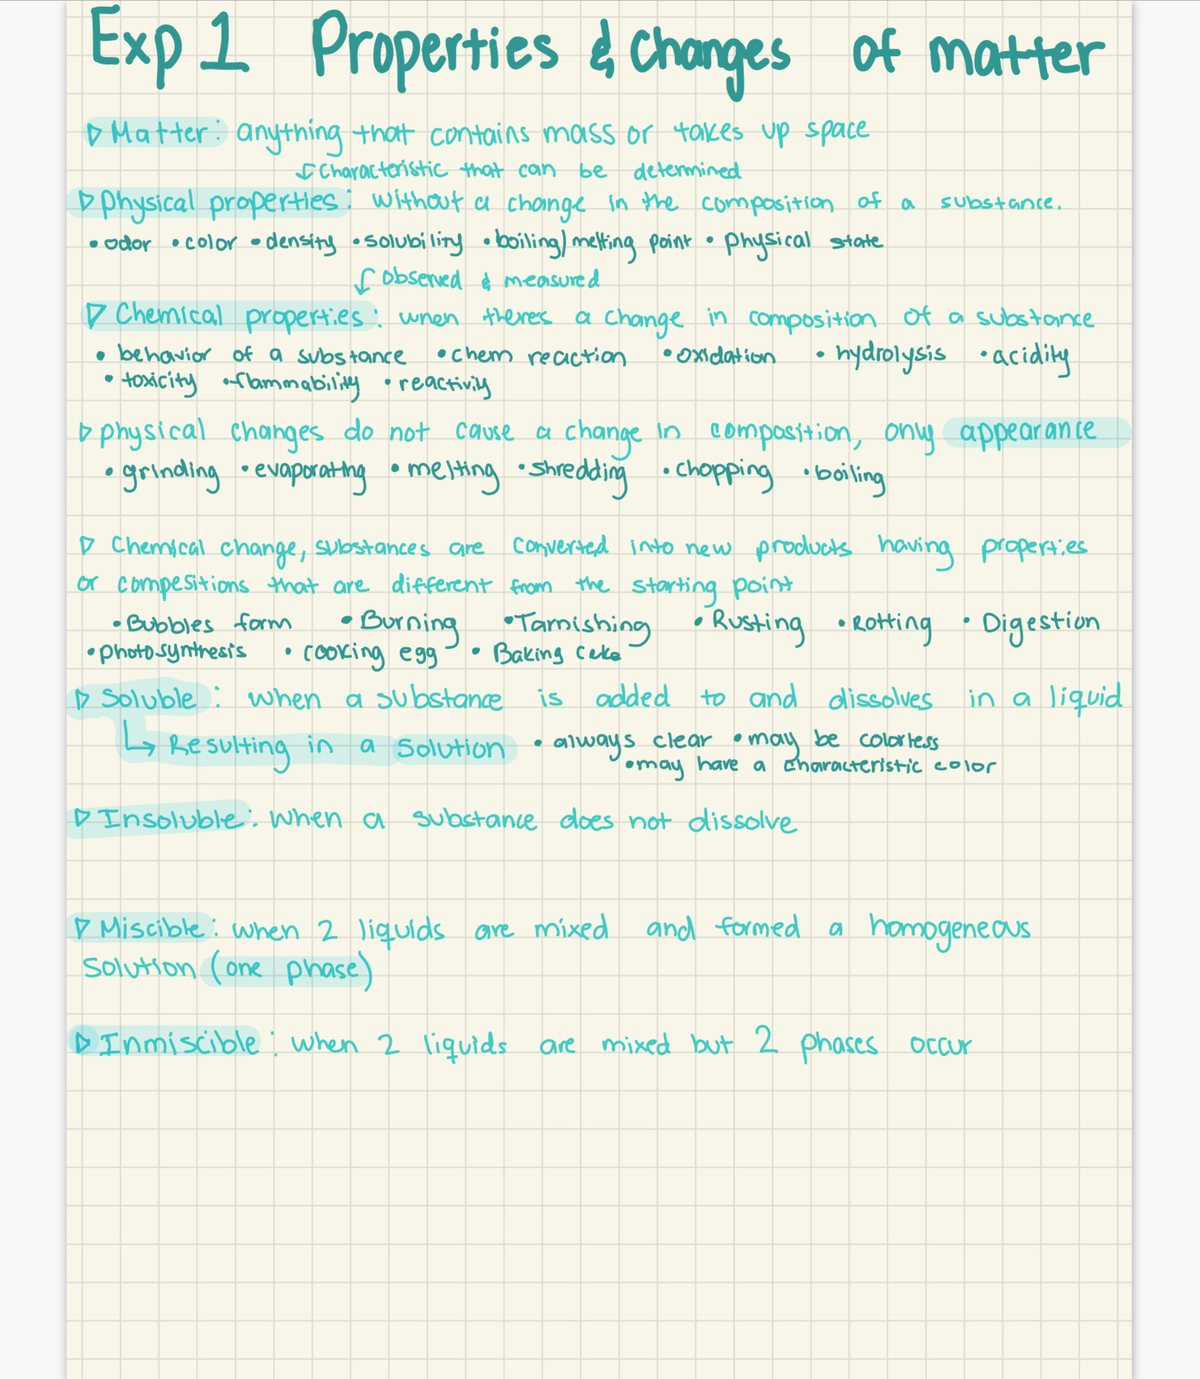 Exp 1 Properties & changes of matter
▷ Matter: anything that contains mass or takes up space
↙ characteristic that can be determined
▷ Physical properties: without a change in the composition of a substance.
• odor • color • density • solubility • boiling/melting point • physical state
↙ observed & measured
▽ Chemical properties: when theres a change in composition of a substance
• behavior of a substance • chem reaction • oxidation • hydrolysis • acidity
• toxicity • flammability • reactivity
▷ physical changes do not cause a change in composition, only appearance
• grinding • evaporating • melting • shredding • chopping • boiling
▷ Chemical change, substances are converted into new products having properties
or compesitions that are different from the starting point
• Bubbles form • Burning • Tarnishing • Rusting • Rotting • Digestion
• photosynthesis • cooking egg • Baking cake
▷ Soluble: when a substance is added to and dissolves in a liquid
↳ Resulting in a solution • always clear • may be colorless
• may have a characteristic color
▷ Insoluble: when a substance does not dissolve
▽ Miscible: when 2 liquids are mixed and formed a homogeneous
solution (one phase)
▷ Inmiscible: when 2 liquids are mixed but 2 phases occur